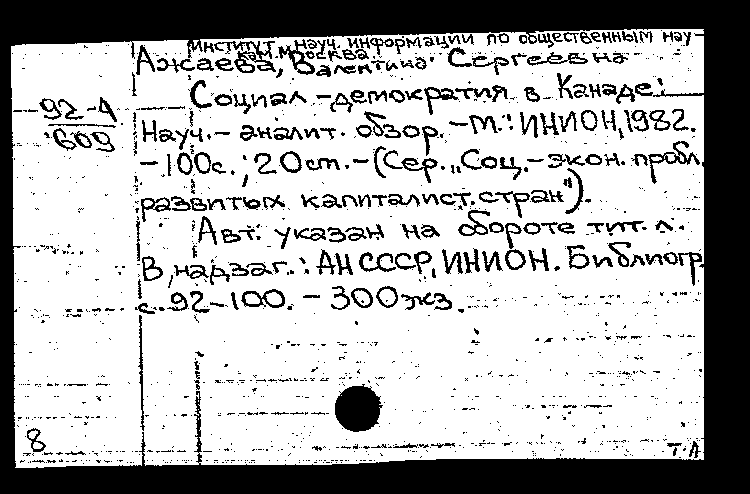 Институт науч. информации по общественным нау-
кам Москва
Ажаева, Валентина Сергеевна
Социал-демократия в Канаде:
92-4
609
Науч.-аналит. обзор. -М.: ИНИОН, 1982.
-100с.; 20см.-(Сер. „Соц.-экон. пробл.
развитых капиталист. стран").
Авт. указан на обороте тит. л.
В надзаг.: АН СССР, ИНИОН. Библиогр.
с. 92-100. - 300экз.
8
Т.А